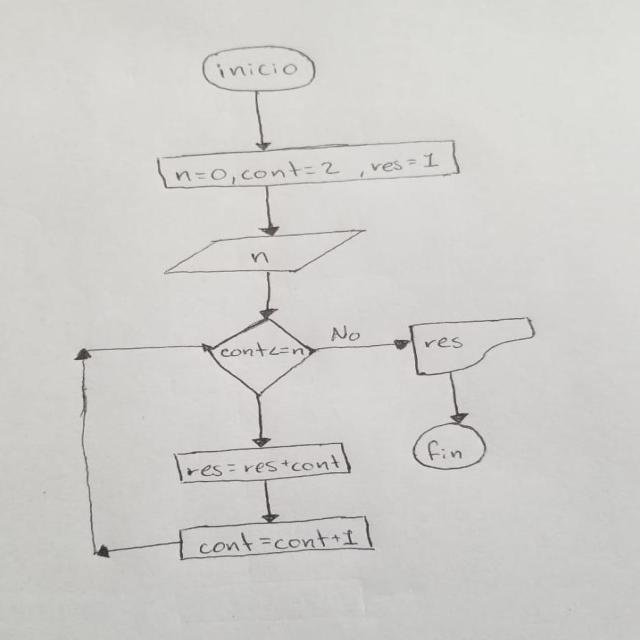 inicio
n=0, cont=2 , res=1
n
cont<=n
No
res
res=res+cont
fin
cont=cont+1